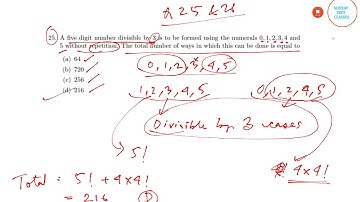 Q 25 & 26
25. A five digit number divisible by 3 is to be formed using the numerals 0, 1, 2, 3, 4 and
5 without repetition. The total number of ways in which this can be done is equal to
(a) 64
(b) 720
(c) 256
(d) 216
0, 1, 2, 3, 4, 5
1, 2, 3, 4, 5 0, 1, 2, 4, 5
Divisible by 3 cases
5! 4 × 4!
Total = 5! + 4 × 4!
= 216 D